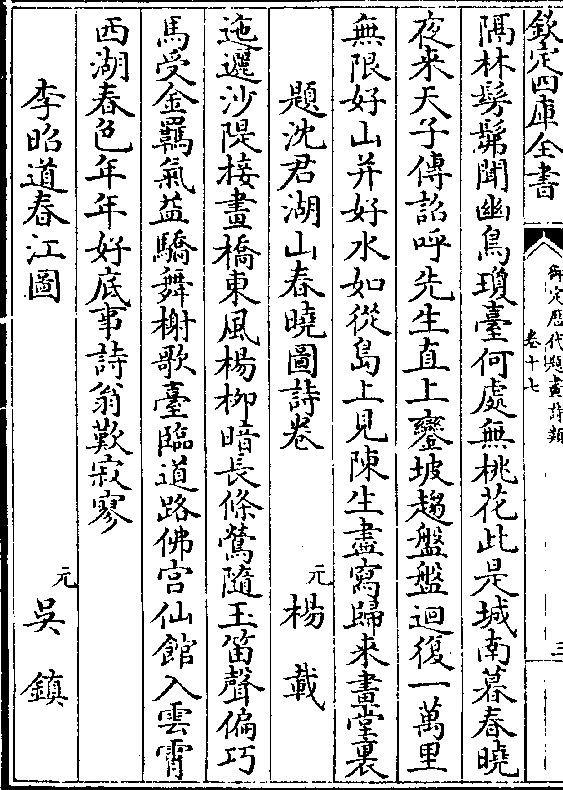 欽定四庫全書
御定歷代題畫詩類
卷十七
三
隔林髣髴聞幽鳥瓊臺何處無桃花此是城南暮春曉
夜來天子傳詔呼先生直上鑾坡趨盤盤迴復一萬里
無限好山并好水如從島上見陳生盡寫歸來畫堂裏
題沈君湖山春曉圖詩卷 元 楊載
迤邐沙隄接畫橋東風楊柳暗長條鶯隨玉笛聲偏巧
馬受金羈氣益驕舞榭歌臺臨道路佛宫仙館入雲霄
西湖春色年年好底事詩翁歎寂寥
李昭道春江圖 元 吳鎮